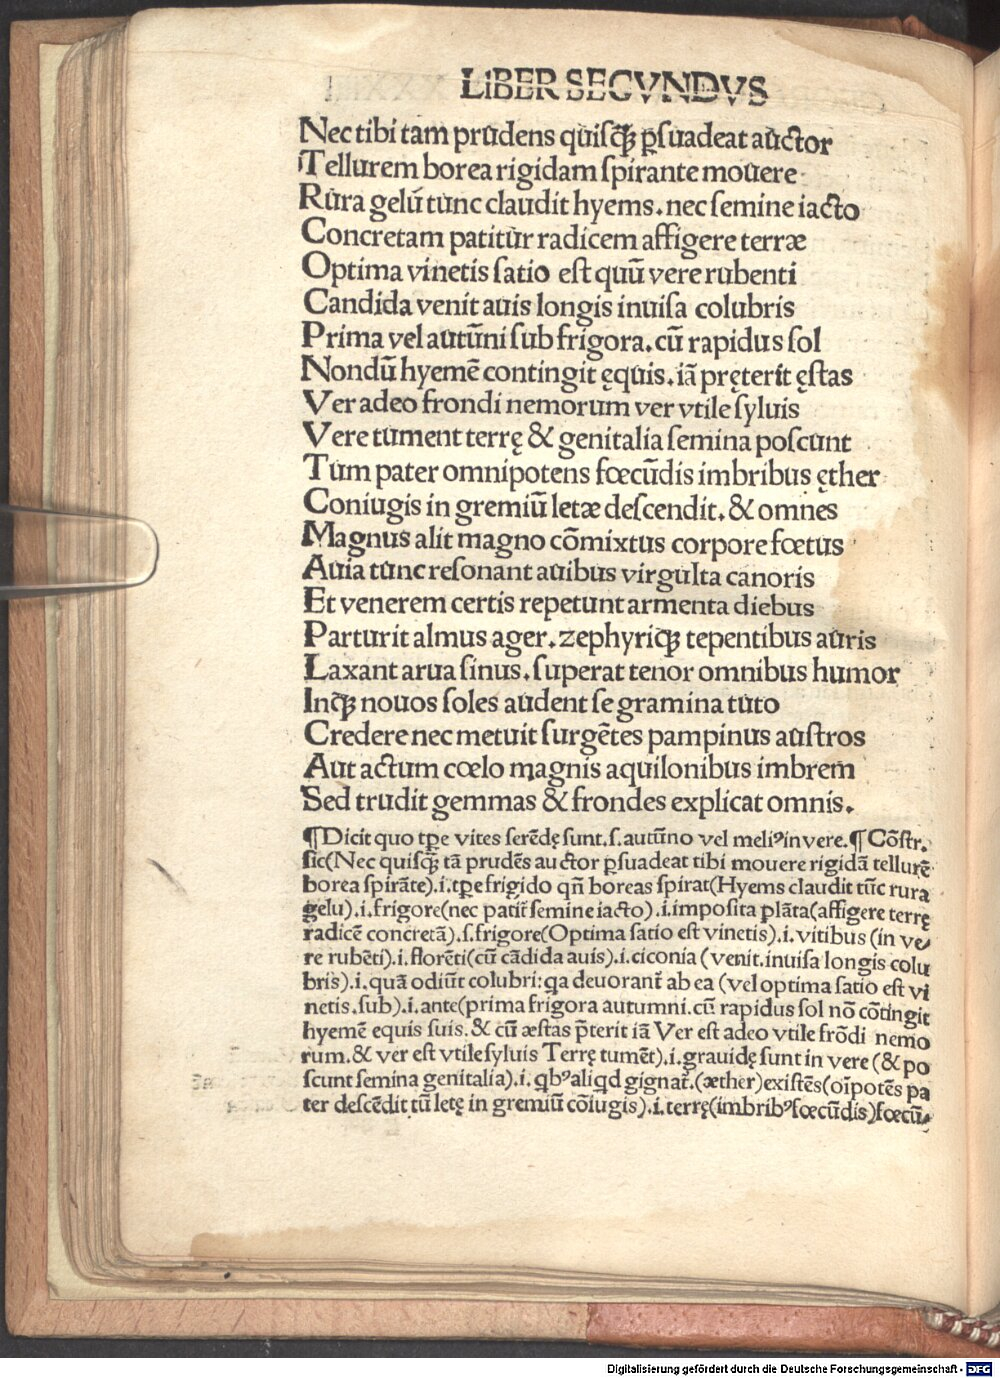 LIBER SECVNDVS
Nec tibi tam prudens quisꝙ̃ ꝑsuadeat auctor
Tellurem borea rigidam spirante mouere
Rura gelu tunc claudit hyems. nec semine iacto
Concretam patitur radicem affigere terræ
Optima vinetis satio est quū vere rubenti
Candida venit auis longis inuisa colubris
Prima vel autūni sub frigora. cū rapidus sol
Nondū hyemē contingit ęquis. iā pręterit ęstas
Ver adeo frondi nemorum ver vtile syluis
Vere tument terrę & genitalia semina poscunt
Tum pater omnipotens fœcūdis imbribus ęther
Coniugis in gremiū letæ descendit. & omnes
Magnus alit magno cōmixtus corpore fœtus
Auia tunc resonant auibus virgulta canoris
Et venerem certis repetunt armenta diebus
Parturit almus ager. zephyriqꝫ tepentibus auris
Laxant arua sinus. superat tenor omnibus humor
Inqꝫ nouos soles audent se gramina tuto
Credere nec metuit surgētes pampinus austros
Aut actum cœlo magnis aquilonibus imbrem
Sed trudit gemmas & frondes explicat omnis.
¶Dicit quo tꝑe vites serēdę sunt. s. autūno vel meliꝰ in vere. ¶Cōstr.
sic(Nec quisꝙ̃ tā prudēs auctor ꝑsuadeat tibi mouere rigidā tellurē
borea spirāte).i. tꝑe frigido qñ boreas spirat(Hyems claudit tūc rura
gelu).i. frigore(nec patit̃ semine iacto).i. imposita plāta(affigere terrę
radicē concretā).s. frigore(Optima satio est vinetis).i. vitibus (in ve/
re rubēti).i. florēti(cū cādida auis).i. ciconia (venit. inuisa longis colu
bris).i. quā odiūt colubri: qa deuorant̃ ab ea (vel optima satio est vi
netis. sub).i. ante(prima frigora autumni. cū rapidus sol nō cōtingit
hyemē equis suis. & cū æstas p̄terit iā Ver est adeo vtile frōdi nemo
rum. & ver est vtile syluis Terrę tumēt).i. grauidę sunt in vere (& po
scunt semina genitalia).i. qbꝰ aliqd gignat̃. (æther) existēs(oīpotēs pa
ter descēdit tū letę in gremiū cōiugis).i. terrę(imbribꝰ fœcūdis)fœcū/
Digitalisierung gefördert durch die Deutsche Forschungsgemeinschaft - DFG